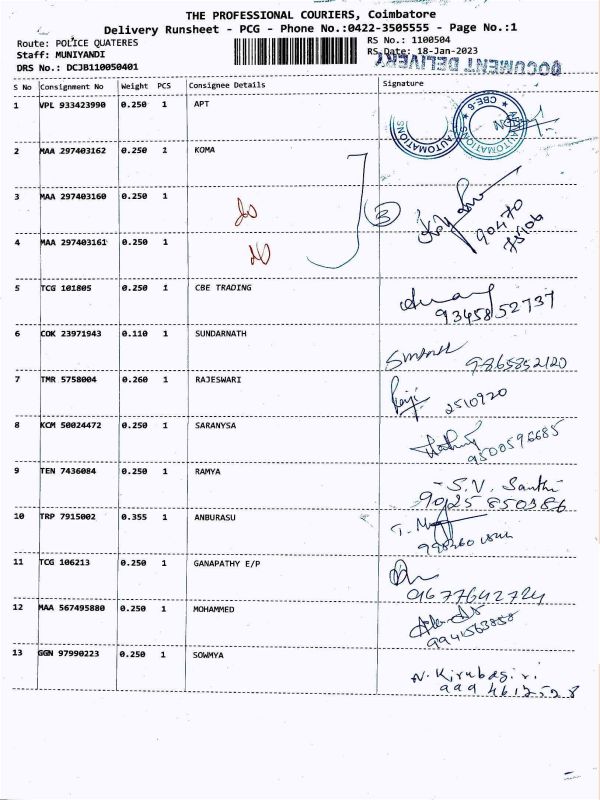 THE PROFESSIONAL COURIERS, Coimbatore
Delivery Runsheet - PCG - Phone No.:0422-3505555 - Page No.:1
Route: POLICE QUATERES RS No.: 1100504
Staff: MUNIYANDI RS Date: 18-Jan-2023
DRS No.: DCJB110050401
DOCUMENT DELIVERY
S No Consignment No Weight PCS Consignee Details Signature
1 VPL 933423990 0.250 1 APT
AUTOMATIONS CBE-6
2 MAA 297403162 0.250 1 KOMA
3 MAA 297403160 0.250 1
3
90470
75106
4 MAA 297403161 0.250 1
5 TCG 101805 0.250 1 CBE TRADING
9345852737
6 COK 23971943 0.110 1 SUNDARNATH
9865852120
7 TMR 5758004 0.260 1 RAJESWARI
2510920
8 KCM 50024472 0.250 1 SARANYSA
9500596685
9 TEN 7436084 0.250 1 RAMYA
S.V. Santhi
9025850386
10 TRP 7915002 0.355 1 ANBURASU
11 TCG 106213 0.250 1 GANAPATHY E/P
9677642724
12 MAA 567495880 0.250 1 MOHAMMED
9941563858
13 GGN 97990223 0.250 1 SOWMYA
N. Kirubagiri
999 4612528